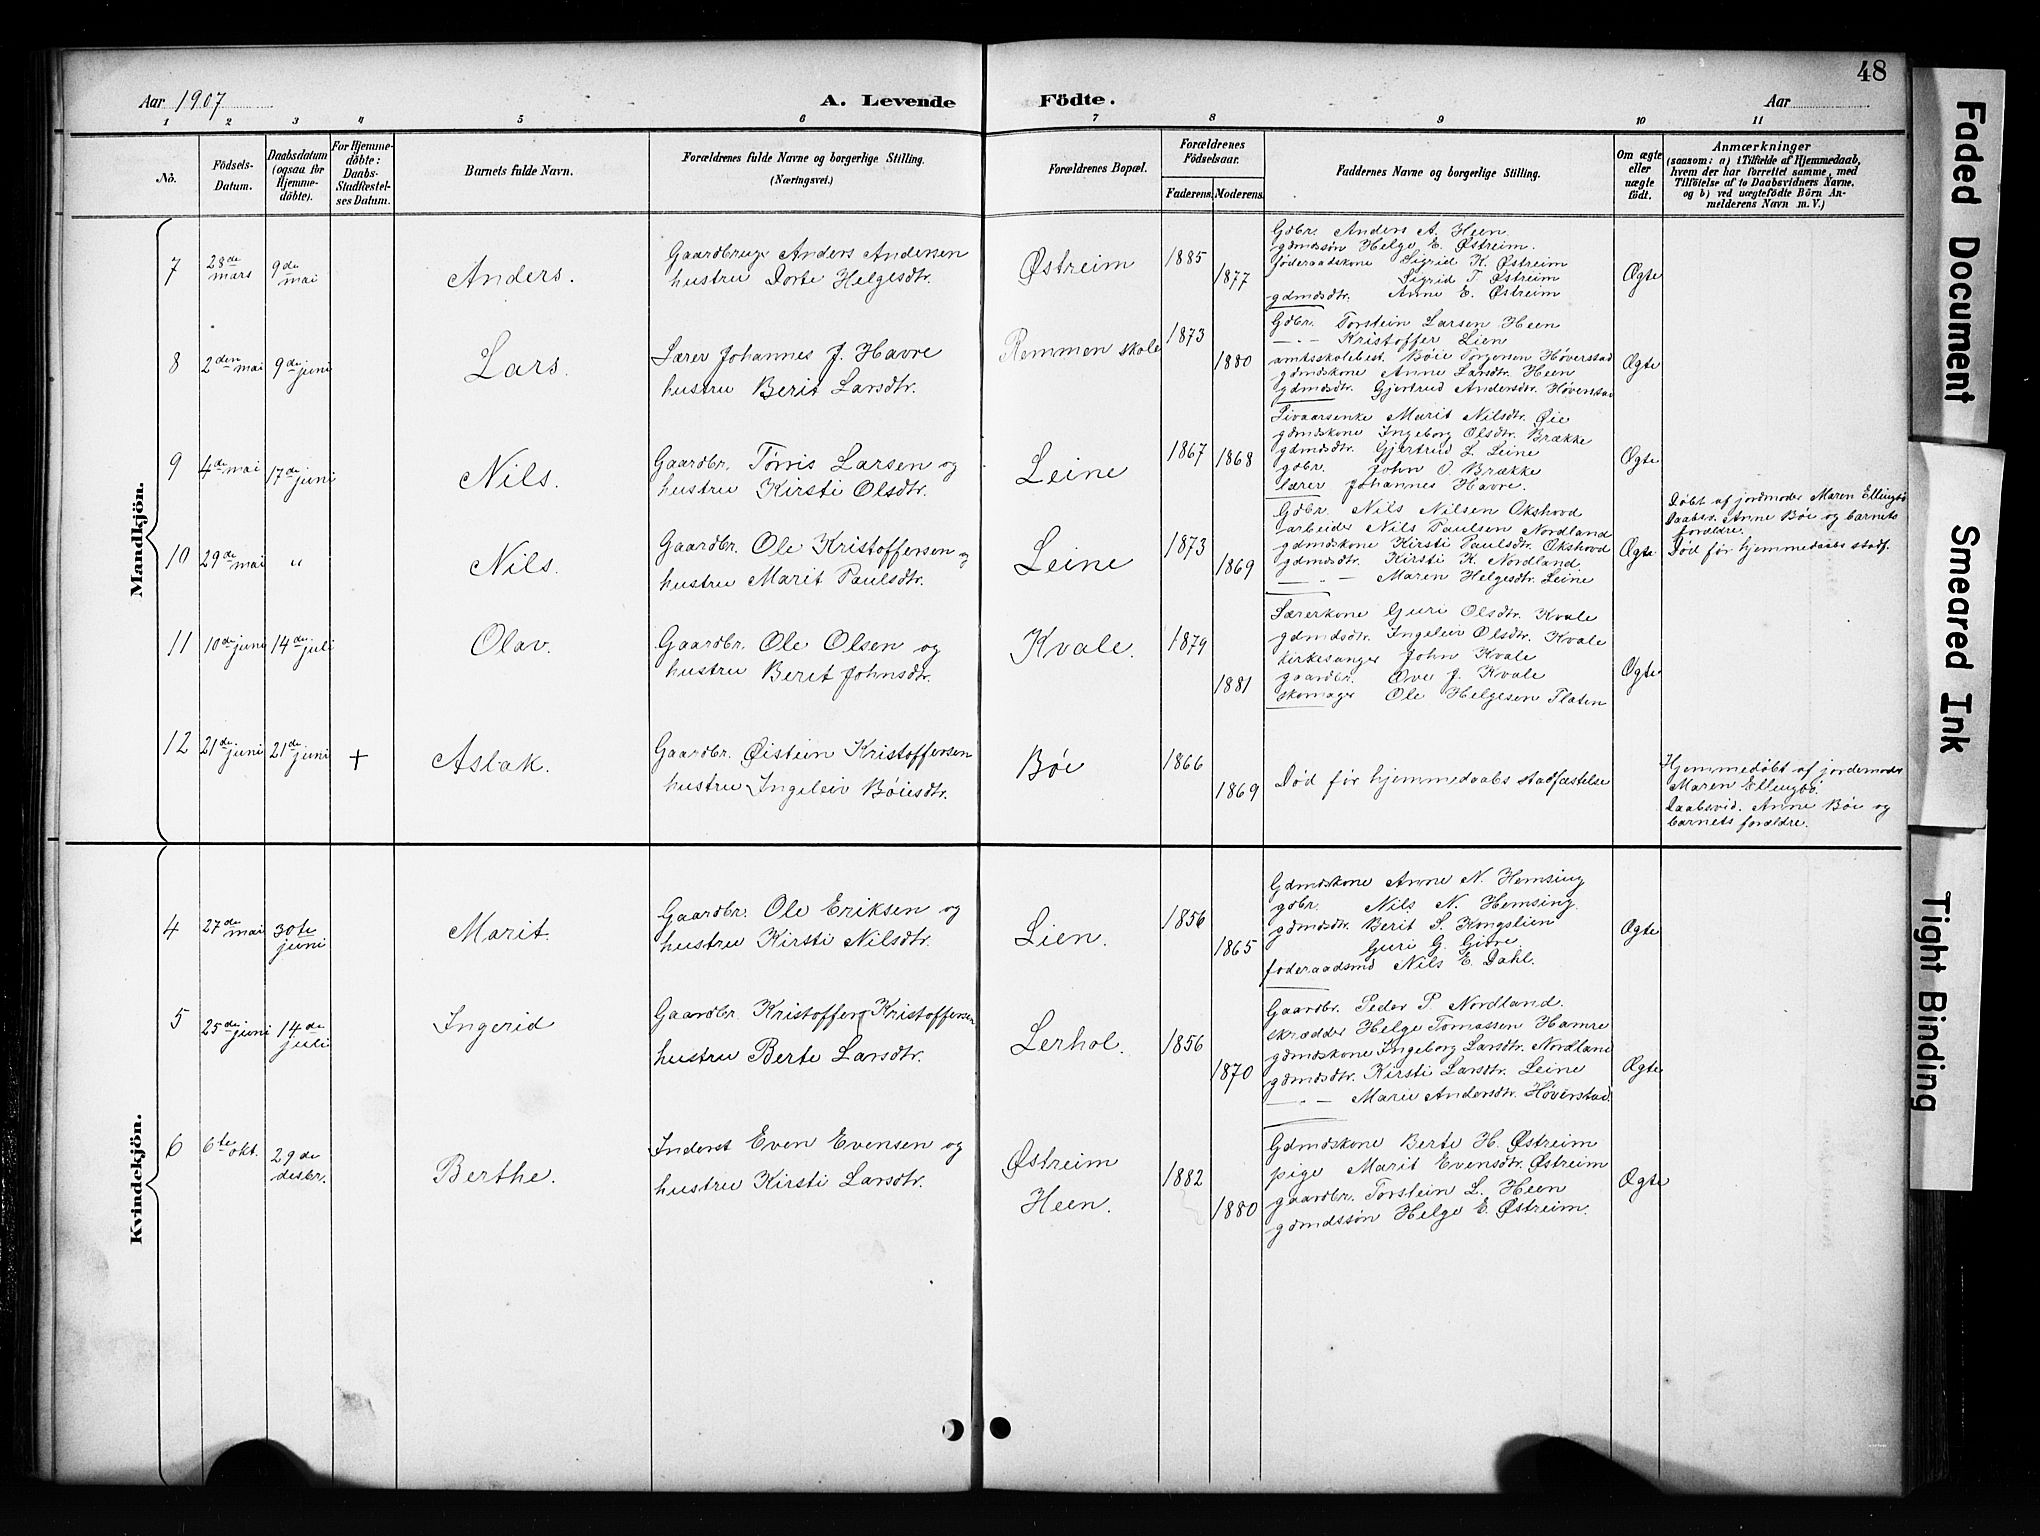 48
Aar 1907
A. Levende Födte.
Aar
1 2 3 4 5 6 7 8 9 10 11
No.
Födsels-Datum.
Daabsdatum (ogsaa for Hjemme-döbte).
For Hjemme-döbte: Daabs-Stadfæstel-ses Datum.
Barnets fulde Navn.
Forældrenes fulde Navne og borgerlige Stilling.
(Næringsvei.)
Forældrenes Bopæl.
Forældrenes Födselsaar.
Faderens. Moderens.
Faddernes Navne og borgerlige Stilling.
Om ægte eller uægte födt.
Anmærkninger
(saasom: a) i Tilfælde af Hjemmedaab,
hvem der har forrettet samme, med
Tilföielse af to Daabsvidners Navne,
og b) ved uægtefödte Börn An-
melderens Navn m. V.)
Mandkjön.
7 28de mars 9de mai Anders.
Gaardbruger Anders Andersen
hustru Dorte Helgesdtr.
Østreim 1885 1877
Gdbr. Anders A. Heen
gdmdssøn Helge E. Østreim.
føderaadskone Sigrid K. Østreim
Sigrid T. Østreim
gdmdsdtr. Anne E. Østreim
Ægte
8 2den mai 9de juni Lars.
Lærer Johannes J. Havre
hustru Berit Larsdtr.
Remmen skole 1873 1880
Gdbr. Torstein Larsen Heen
— " — Kristoffer Lien
amtsskolebest. Bøie Torgersen Høverstad
gdmdskone Anne Larsdtr. Heen
gdmdsdtr. Gjertrud Andersdtr. Høverstad
Ægte
9 4de mai 17de juni Nils.
Gaardbr. Tørris Larsen og
hustru Kirsti Olsdtr.
Leine 1867 1868
Livaarsenke Marit Nilsdtr. Øie
gdmdskone Ingeborg Olsdtr. Brække
gdmdsdtr. Gjertrud L. Leine
gdbr. John O. Brække
lærer Johannes Havre.
Ægte
10 29de mai " Nils.
Gaardbr. Ole Kristoffersen og
hustru Marit Paulsdtr.
Leine 1873 1869
Gdbr. Nils Nilsen Okshovd
arbeider Nils Paulsen Nordland
gdmdskone Kirsti Paulsdtr. Okshovd
gdmdsdtr. Kirsti K. Nordland.
— " — Maren Helgesdtr. Leine
Ægte
Døbt af jordmoder Maren Ellingbø
Daabsv. Anne Bøe og barnets
forældre.
Død før hjemmedaabs stadf.
11 10de juni 14de juli Olav.
Gaardbr. Ole Olsen og
hustru Berit Johnsdtr.
Kvale. 1879 1881
Lærerkone Guri Olsdtr. Kvale
gdmdsdtr. Ingeleiv Olsdtr. Kvale
kirkesanger John Kvale
gaardbr. Over J. Kvale
skomager Ole Helgesen Flaten
Ægte
12 21de juni 21de juni + Aslak.
Gaardbr. Øistein Kristoffersen
hustru Ingeleiv Bøiesdtr.
Bøe 1866 1869
Død før hjemmedaabs stadfæstelse
Hjemmedøbt af jordemoder
Maren Ellingbø.
Daabsvid. Anne Bøe og
barnets forældre.
Kvindekjön.
4 27de mai 30te juni Marit.
Gaardbr. Ole Eriksen og
hustru Kirsti Nilsdtr.
Lien. 1856 1865
Gdmdskone Anne N. Hemsing
gdbr. Nils N. Hemsing.
gdmdsdtr. Berit S. Kongslien
Guri G. Givre.
føderaadsmd Nils E. Dahl.
Ægte
5 25de juni 14de juli Ingerid
Gaardbr. Kristoffer Kristoffersen
hustru Berte Larsdtr.
Lerhol. 1856 1870
Gaardbr. Peder P. Nordland.
skrædder Helge Tomassen Hamre
gdmdskone Ingeborg Larsdtr. Nordland
gdmdsdtr. Kirsti Larsdtr. Leine
— " — Marie Andersdtr. Høverstad.
Ægte
6 6te okt. 29de desbr. Berthe.
Inderst Even Evensen og
hustru Kirsti Larsdtr.
Østreim
Heen. 1882 1880
Gdmdskone Berte H. Østreim
pige Marit Evensdtr. Østreim
gaardbr. Torstein L. Heen
gdmdssøn Helge E. Østreim.
Ægte
Faded Document
Smeared Ink
Tight Binding